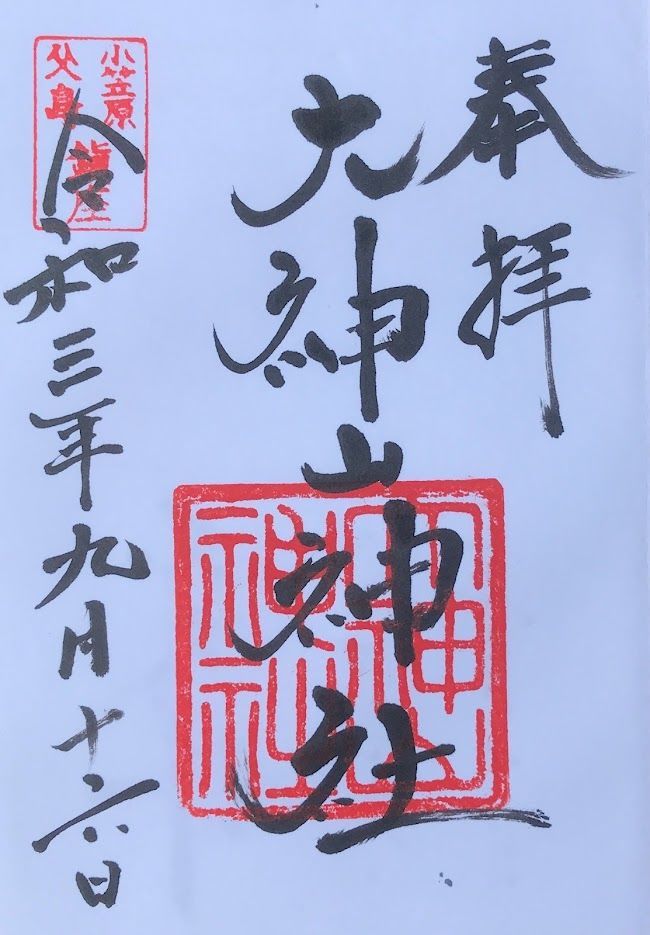 奉拝
大神山神社
令和三年九月十六日
小笠原
父島
大神山
神社